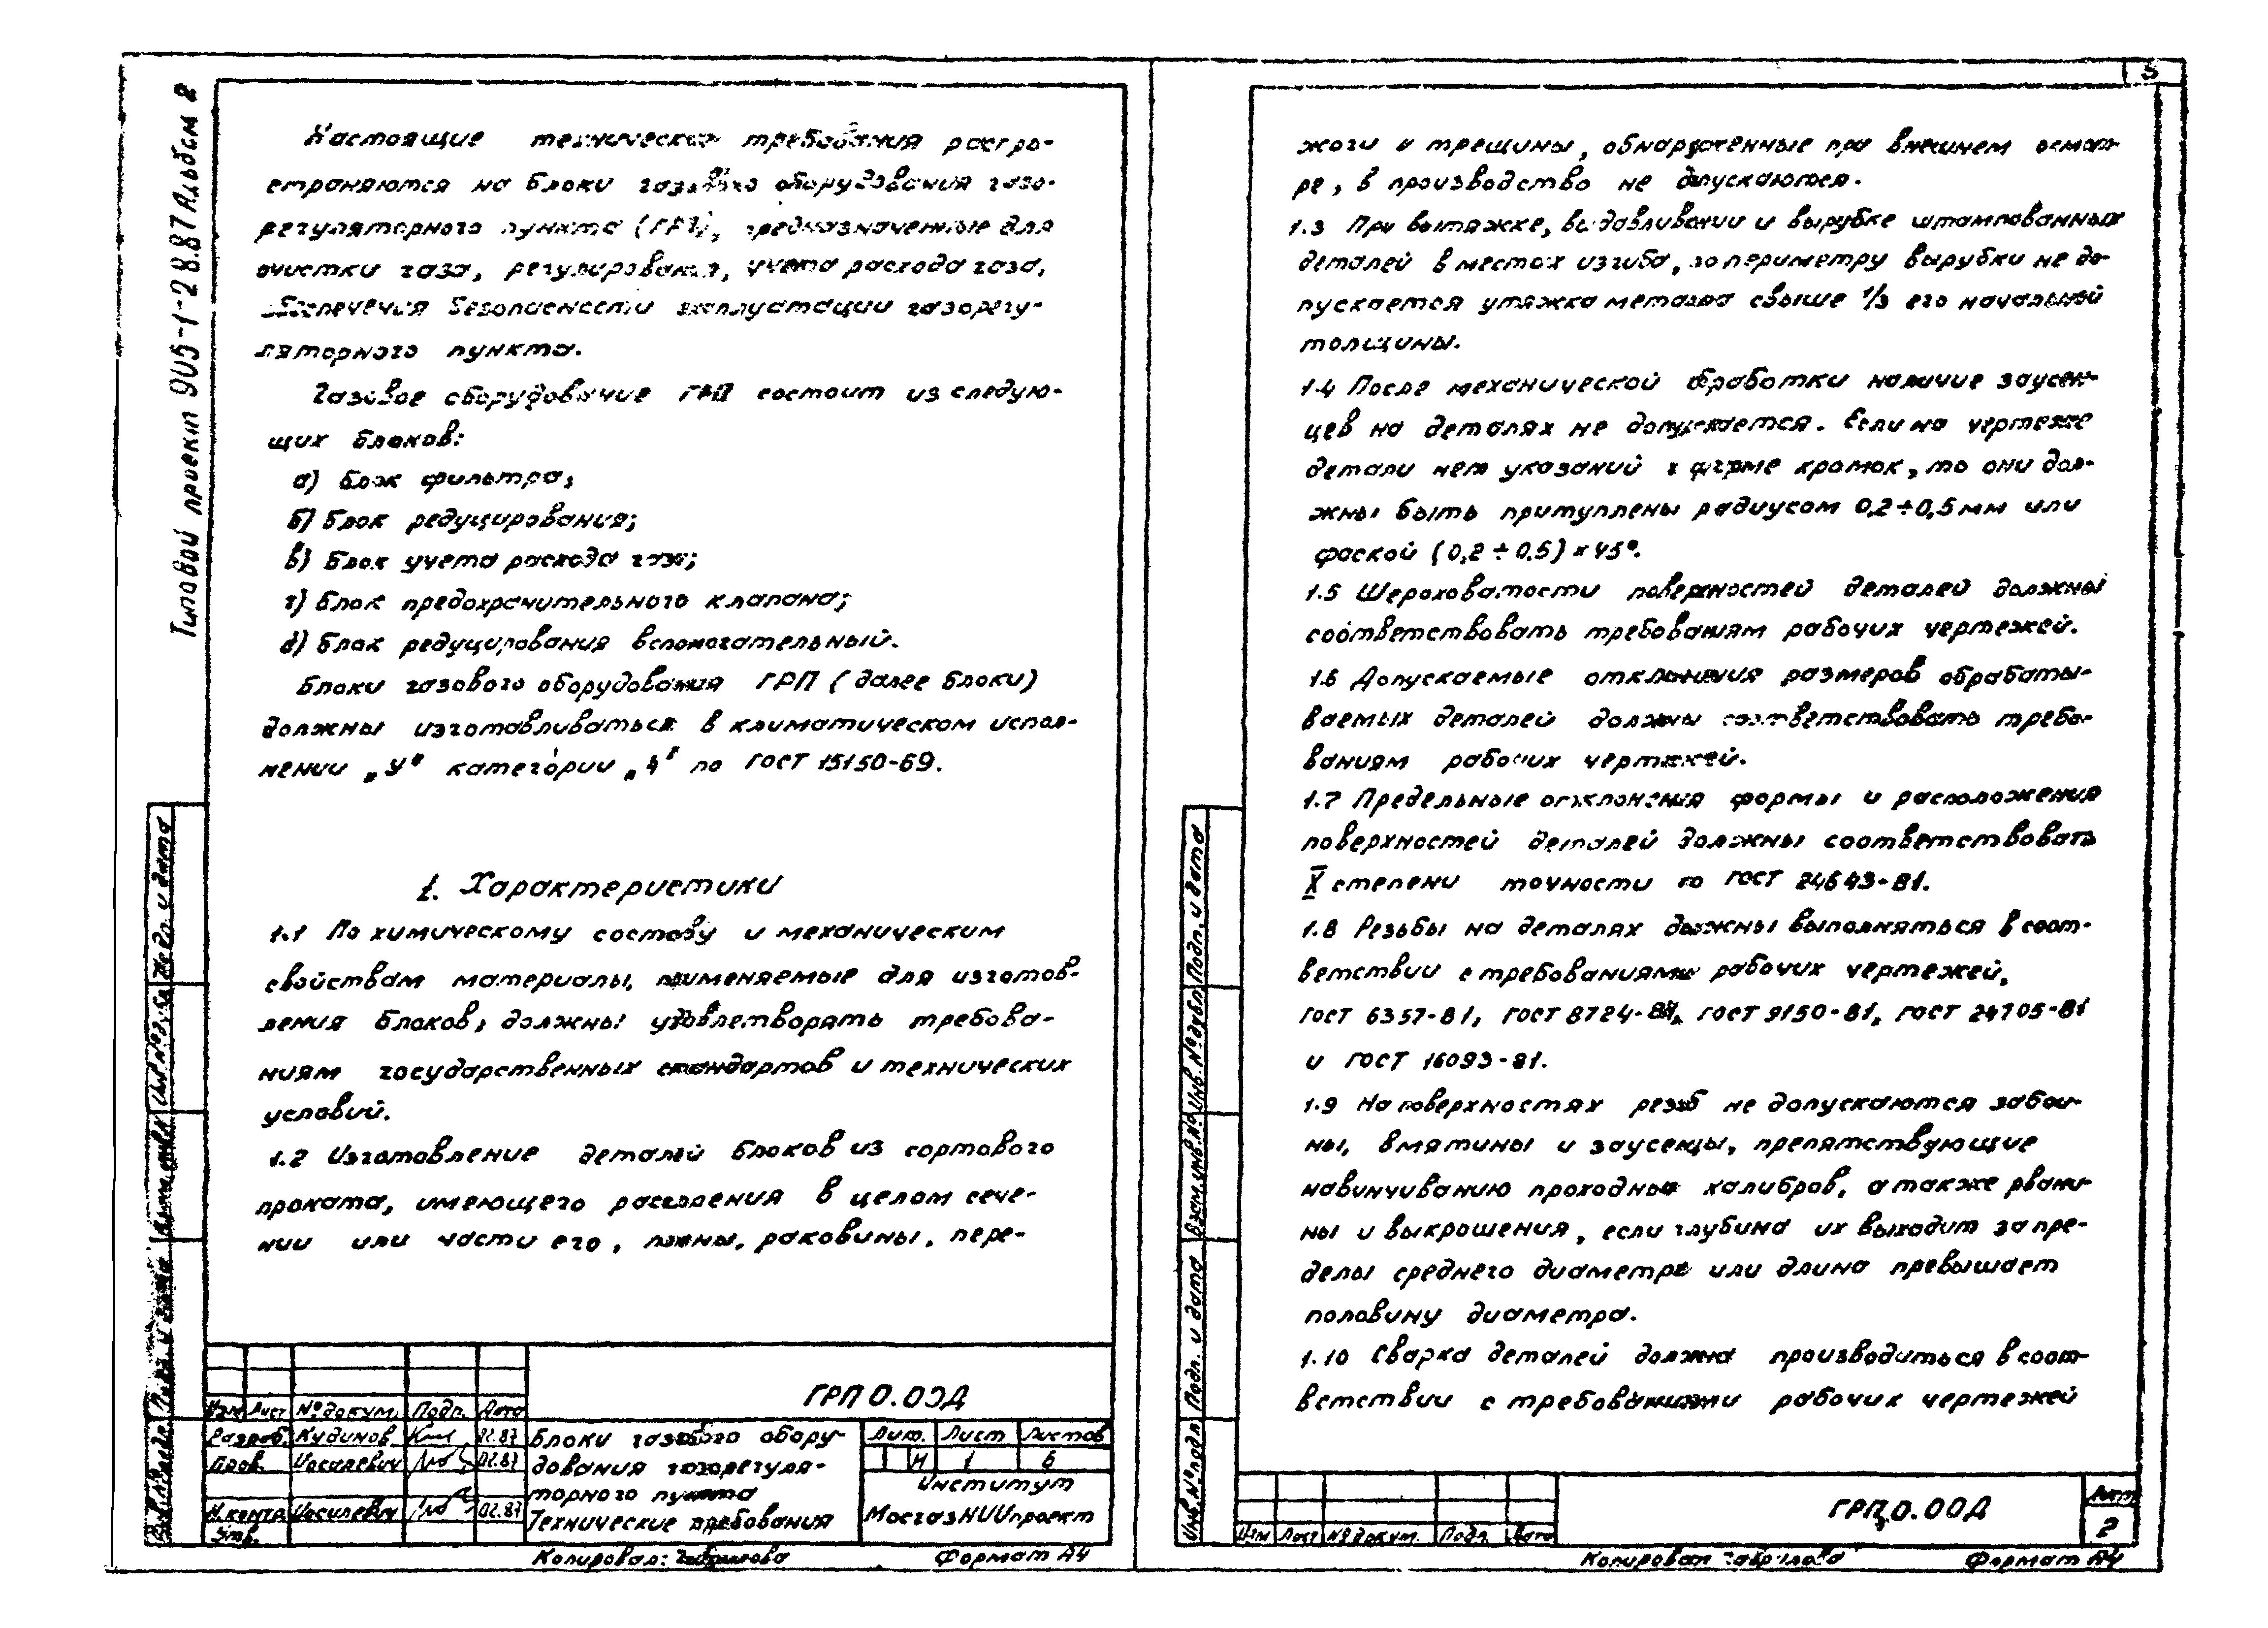 Типовой проект 905-1-28.87 Альбом 2
Настоящие технические требования распро-
страняются на блоки газового оборудования газо-
регуляторного пункта (ГРП), предназначенные для
очистки газа, регулирования, учета расхода газа,
обеспечения безопасности эксплуатации газорегу-
ляторного пункта.
Газовое оборудование ГРП состоит из следую-
щих блоков:
а) блок фильтра;
б) блок редуцирования;
в) блок учета расхода газа;
г) блок предохранительного клапана;
д) блок редуцирования вспомогательный.
Блоки газового оборудования ГРП (далее блоки)
должны изготавливаться в климатическом испол-
нении „У" категории „4" по ГОСТ 15150-69.
1. Характеристики
1.1 По химическому составу и механическим
свойствам материалы, применяемые для изготов-
ления блоков, должны удовлетворять требова-
ниям государственных стандартов и технических
условий.
1.2 Изготовление деталей блоков из сортового
проката, имеющего расслоения в целом сече-
нии или части его, плены, раковины, пере-
Изм Лист № докум. Подп. Дата
Разраб. Кудинов 02.87
Пров. Иосилевич 02.87
Н.контр. Иосилевич 02.87
Утв.
ГРП 0.00Д
Блоки газового обору-
дования газорегуля-
торного пункта
Технические требования
Лит. Лист Листов
И 1 6
Институт
МосгазНИИпроект
Копировал: Гаврилова Формат А4
5
жоги и трещины, обнаруженные при внешнем осмот-
ре, в производство не допускаются.
1.3 При вытяжке, выдавливании и вырубке штампованных
деталей в местах изгиба, по периметру вырубки не до-
пускается утяжка металла свыше 1/3 его начальной
толщины.
1.4 После механической обработки наличие заусен-
цев на деталях не допускается. Если на чертеже
детали нет указаний о форме кромок, то они дол-
жны быть притуплены радиусом 0,2÷0,5 мм или
фаской (0,2÷0,5)×45°.
1.5 Шероховатости поверхностей деталей должны
соответствовать требованиям рабочих чертежей.
1.6 Допускаемые отклонения размеров обрабаты-
ваемых деталей должны соответствовать требо-
ваниям рабочих чертежей.
1.7 Предельные отклонения формы и расположения
поверхностей деталей должны соответствовать
X степени точности по ГОСТ 24643-81.
1.8 Резьбы на деталях должны выполняться в соот-
ветствии с требованиями рабочих чертежей,
ГОСТ 6357-81, ГОСТ 8724-81, ГОСТ 9150-81, ГОСТ 24705-81
и ГОСТ 16093-81.
1.9 На поверхностях резьб не допускаются забои-
ны, вмятины и заусенцы, препятствующие
навинчиванию проходных калибров, а также рвани-
ны и выкрошения, если глубина их выходит за пре-
делы среднего диаметра или длина превышает
половину диаметра.
1.10 Сварка деталей должна производиться в соот-
ветствии с требованиями рабочих чертежей
Инв.№ подл. Подп. и дата Взам.инв.№ Инв.№ дубл. Подп. и дата
Изм Лист № докум. Подп. Дата
ГРП 0.00Д
Лист
2
Копировал Гаврилова Формат А4